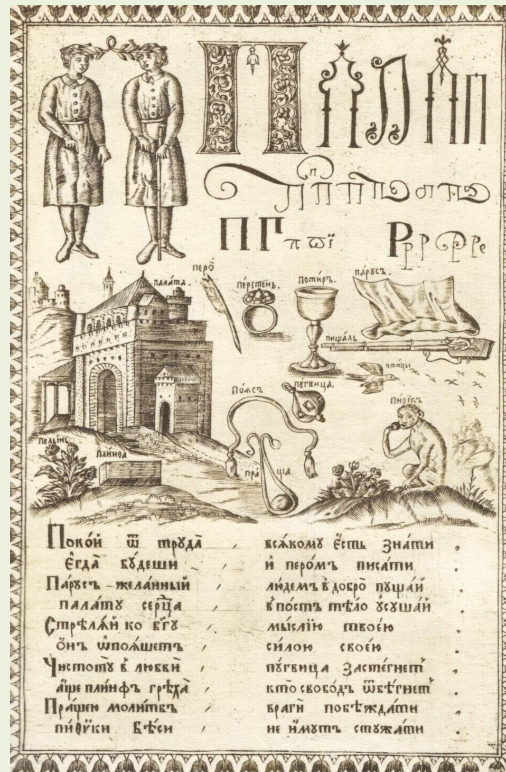 П
п п п п п
П Г п
Р р р р р
перо̀
пала́та.
пе́рстень.
потирꙋ.
па́русъ.
пищаль
птицы
По́ясъ
пꙋгвица.
пиѳикъ
пелынь
плинѳа
пра ща.
Поко́й ѿ трꙋда̀ всѧ́комꙋ є҆́сть зна́ти
Є҆гда̀ бꙋ́деши и҆ перо́мъ писа́ти
Па́рꙋсъ желанный людемъ в добро̀ пꙋща́й
пала́тꙋ се́рца в по́стъ тѣ́ло ѹсꙋша́й
Стрѣлѧ́й ко бг҃ꙋ мы́слїю твое́ю
ѻ҆́нъ ѡ҆поѧ́шетъ си́лою свое́ю
Чистотꙋ̀ в любвѝ пꙋгвица засте́гнетъ
а҆ще пли́нѳъ грѣха̀ кто свобо́дъ ѿбѣ́гнетъ
Пра́щею моли́твъ врагѝ побѣжда́ти
пиѳики бѣ́си не и҆мꙋтъ стꙋжа́ти